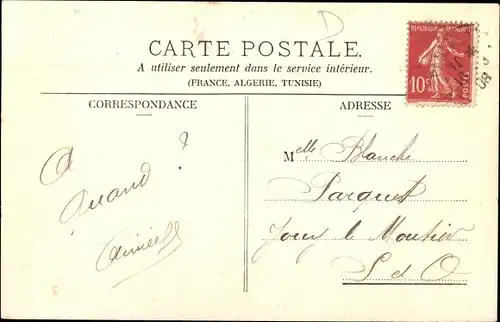 D
CARTE POSTALE.
A utiliser seulement dans le service intérieur.
(FRANCE, ALGERIE, TUNISIE)
RÉPUBLIQUE FRANÇAISE
10c
POSTES
08
CORRESPONDANCE
A
Quand ?
Aimée
ADRESSE
Melle Blanche
Parquet
Jouy le Moutier
S et O